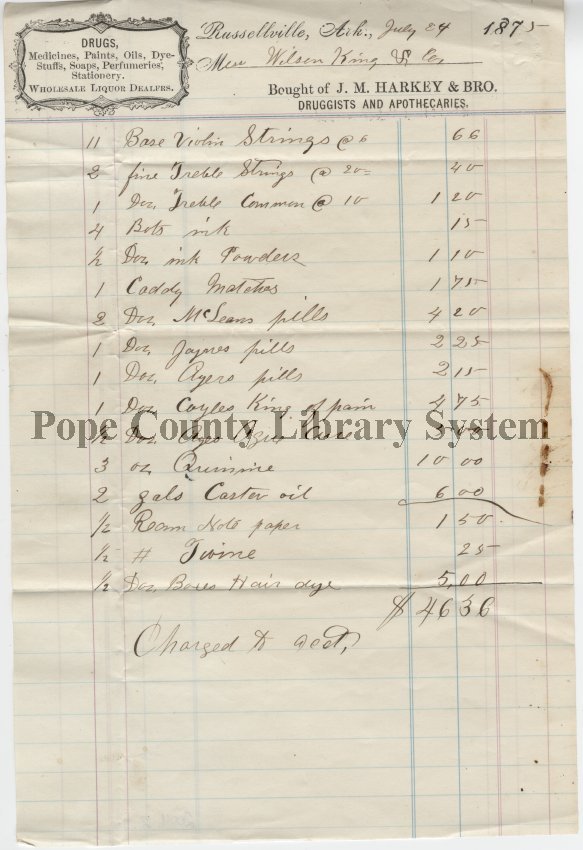 DRUGS,
Medicines, Paints, Oils, Dye-
Stuffs, Soaps, Perfumeries,
Stationery.
WHOLESALE LIQUOR DEALERS.
Russellville, Ark., July 24 1875
Mess Wilson King & Co
Bought of J. M. HARKEY & BRO.
DRUGGISTS AND APOTHECARIES.
11 Base Violin Strings @ 6 66
2 fine Treble Strings @ 20 40
1 Doz, Treble Common @ 10 1 20
4 Bots ink 15
½ Doz ink Powders 1 10
1 Caddy Matches 1 75
2 Doz, McLeans pills 4 20
1 Doz, Jaynes pills 2 25
1 Doz, Ayers pills 2 15
1 Doz Coyles King of pain 4 75
Pope County Library System
½ Doz Ague Cure
3 oz Quinine 10 00
2 gals Caster oil 6 00
½ Ream Note paper 1 50
½ # Twine 25
½ Doz, Boxes Hair dye 5,00
$ 46 36
Charged to acct,